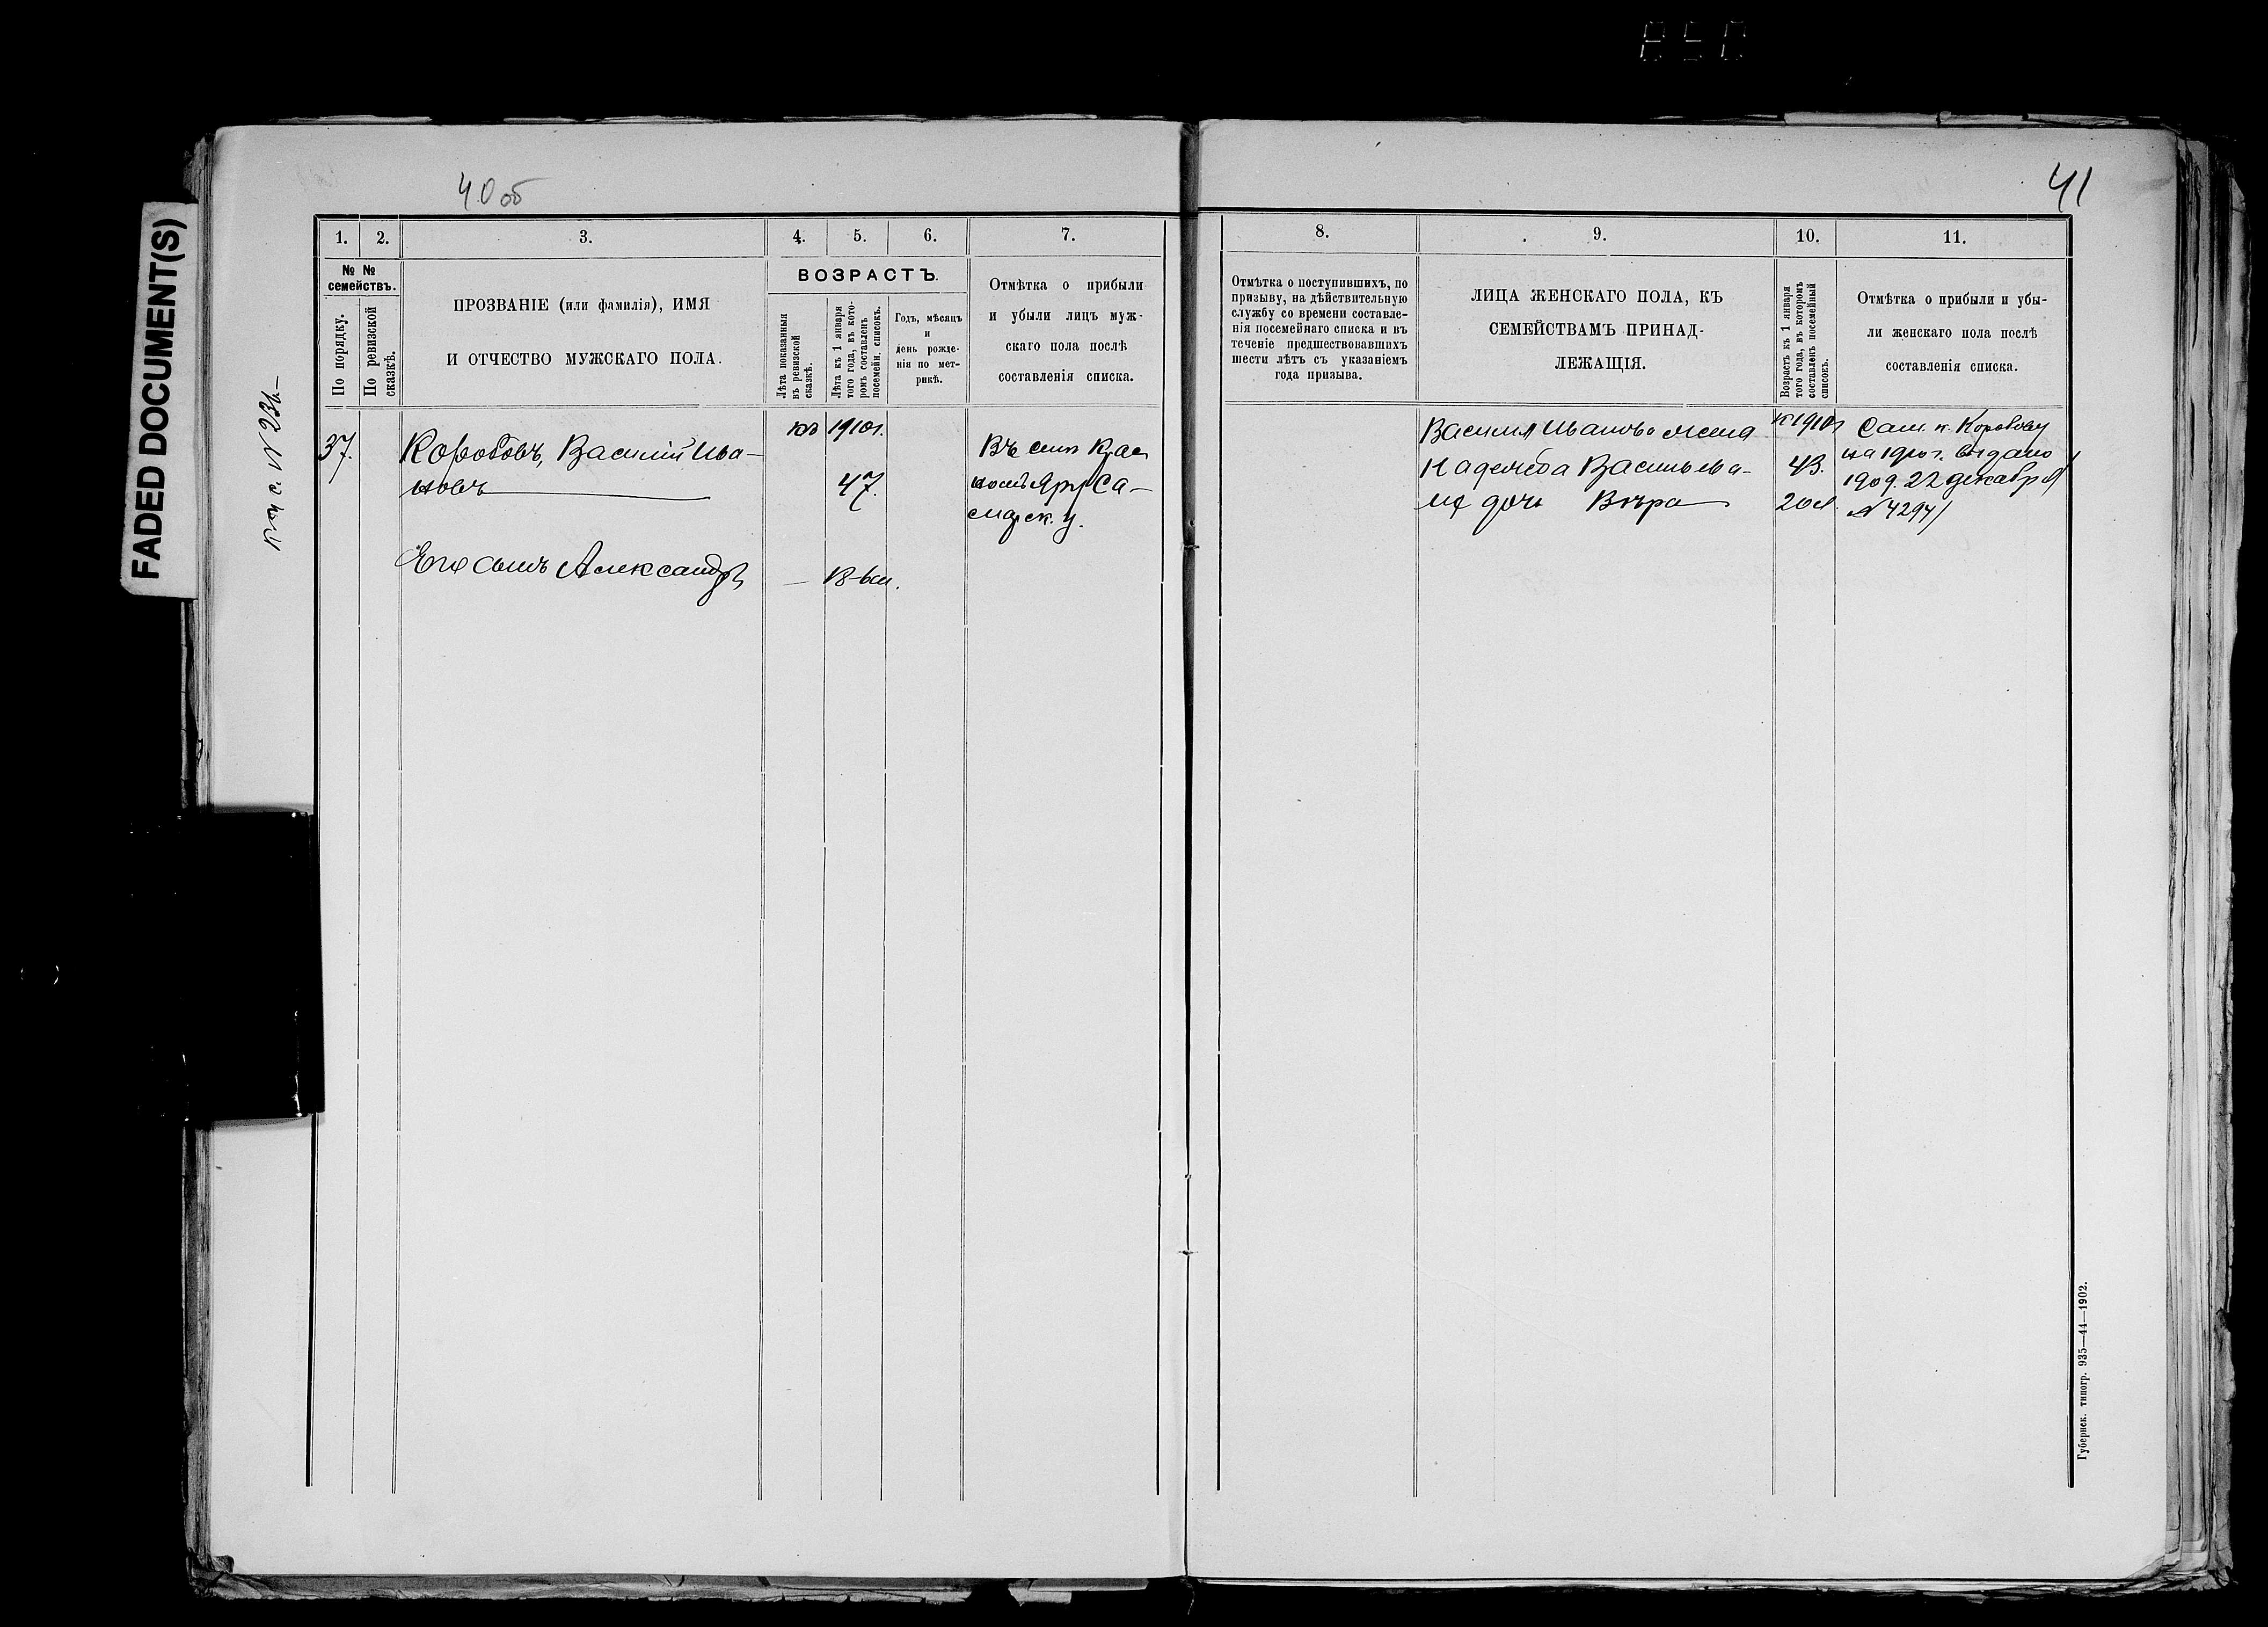 FADED DOCUMENT(S)
40 об
41
1. 2. 3. 4. 5. 6. 7.
№ № семействъ.
По порядку.
По ревизской сказкѣ.
ПРОЗВАНІЕ (или фамилія), ИМЯ
И ОТЧЕСТВО МУЖСКАГО ПОЛА.
ВОЗРАСТЪ.
Лѣта показанныя
въ ревизской
сказкѣ.
Лѣта къ 1 января
того года, въ кото-
ромъ составленъ
посемейн. списокъ.
Годъ, мѣсяцъ
и
день рожде-
нія по мет-
рикѣ.
Отмѣтка о прибыли
и убыли лицъ муж-
скаго пола послѣ
составленія списка.
37.
Коробовъ, Василій Ива-
новъ
Его сынъ Александръ
къ 1910 г.
47.
— 18-6м.
Въ
Са-
марск. у.
8. 9. 10. 11.
Отмѣтка о поступившихъ, по
призыву, на дѣйствительную
службу со времени составле-
нія посемейнаго списка и въ
теченіе предшествовавшихъ
шести лѣтъ съ указаніемъ
года призыва.
ЛИЦА ЖЕНСКАГО ПОЛА, КЪ
СЕМЕЙСТВАМЪ ПРИНАД-
ЛЕЖАЩІЯ.
Возрастъ къ 1 января
того года, въ которомъ
составленъ посемейный
списокъ.
Отмѣтка о прибыли и убы-
ли женскаго пола послѣ
составленія списка.
Василія Иванова жена
Надежда Васильева-
их дочь Вѣра
к 1910 г
43.
20 л.
Коробову
на 1910 г. выдано
1909. 22 декабря
№ 4294
Губернск. типогр. 935—44—1902.